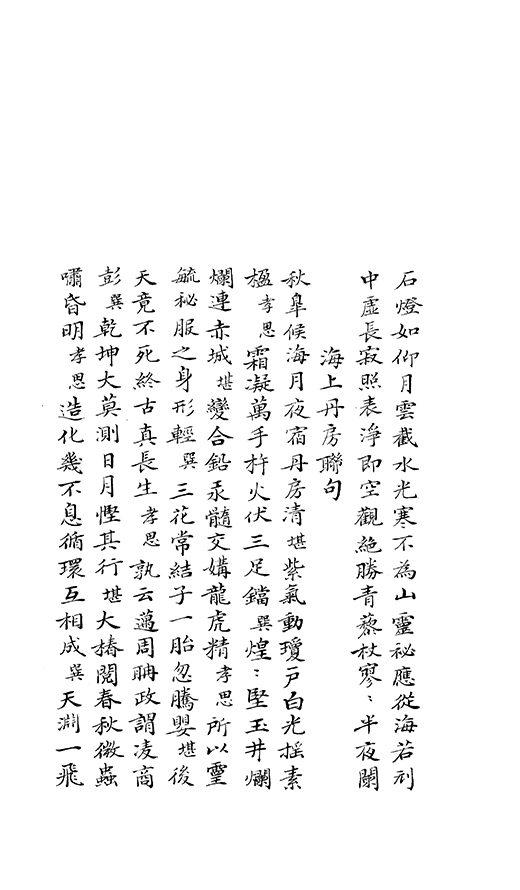 石燈如仰月雲截水光寒不為山靈秘應從海若刓
中虛長寂照表淨即空觀絕勝青藜杖寥〻半夜闌
海上丹房聯句
秋皐候海月夜宿丹房清堪紫氣動瓊戶白光摇素
楹孝思霜凝萬手杵火伏三足鐺巽煌〻堅玉井爛
爛連赤城堪變合鉛汞髓交媾龍虎精孝思所以靈
毓秘服之身形輕巽三花常結子一胎忽騰嬰堪後
天竟不死終古真長生孝思孰云邁周聃政謂凌商
彭巽乾坤大莫測日月慳其行堪大椿閱春秋微蟲
嘯昏明孝思造化幾不息循環互相成巽天淵一飛